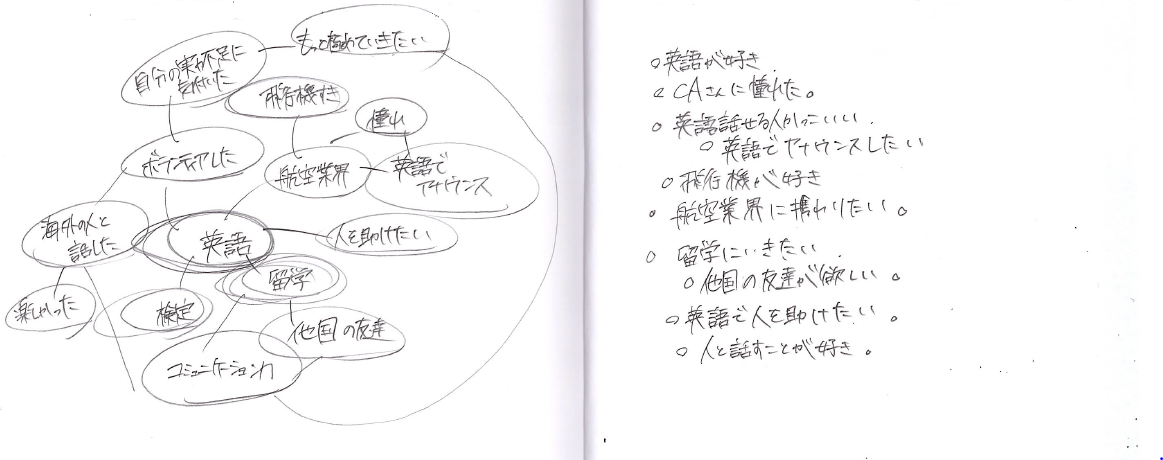 もっと極めていきたい
自分の実力不足に
気付いた
飛行機好き
憧れ
ボランティアした
航空業界
英語で
アナウンス
海外の人と
話した
英語
人を助けたい
留学
楽しかった
検定
他国の友達
コミュニケーション力
英語が好き.
CAさんに憧れた。
英語話せる人かっこいい.
英語でアナウンスしたい
飛行機が好き
航空業界に携わりたい。
留学にいきたい.
他国の友達が欲しい。
英語で人を助けたい。
人と話すことが好き。